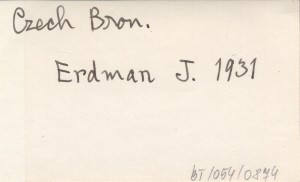 Czech Bron.
Erdman J. 1931
BT/054/0874